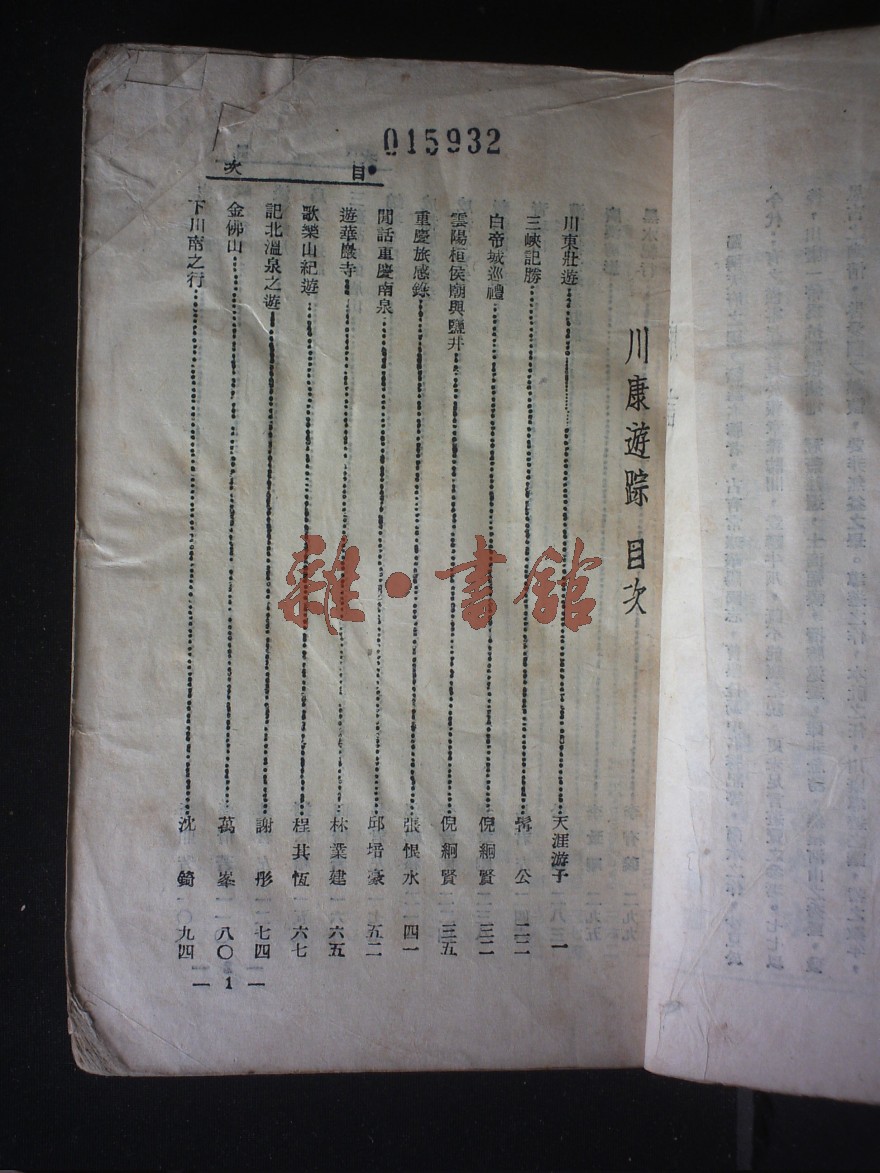 015932
目次
川康遊踪 目次
川東壯遊 天涯游子 一
三峽記勝 公 二二
白帝城巡禮 倪絅賢 三二
雲陽桓侯廟與鹽井 倪絅賢 三五
重慶旅感錄 張恨水 四一
閒話重慶南泉 邱培豪 五二
遊華巖寺 林業建 六五
歌樂山紀遊 程其恆 六七
記北溫泉之遊 謝彤 七四
金佛山 萬峯 八〇
下川南之行 沈錡 九四
1
雜·書館